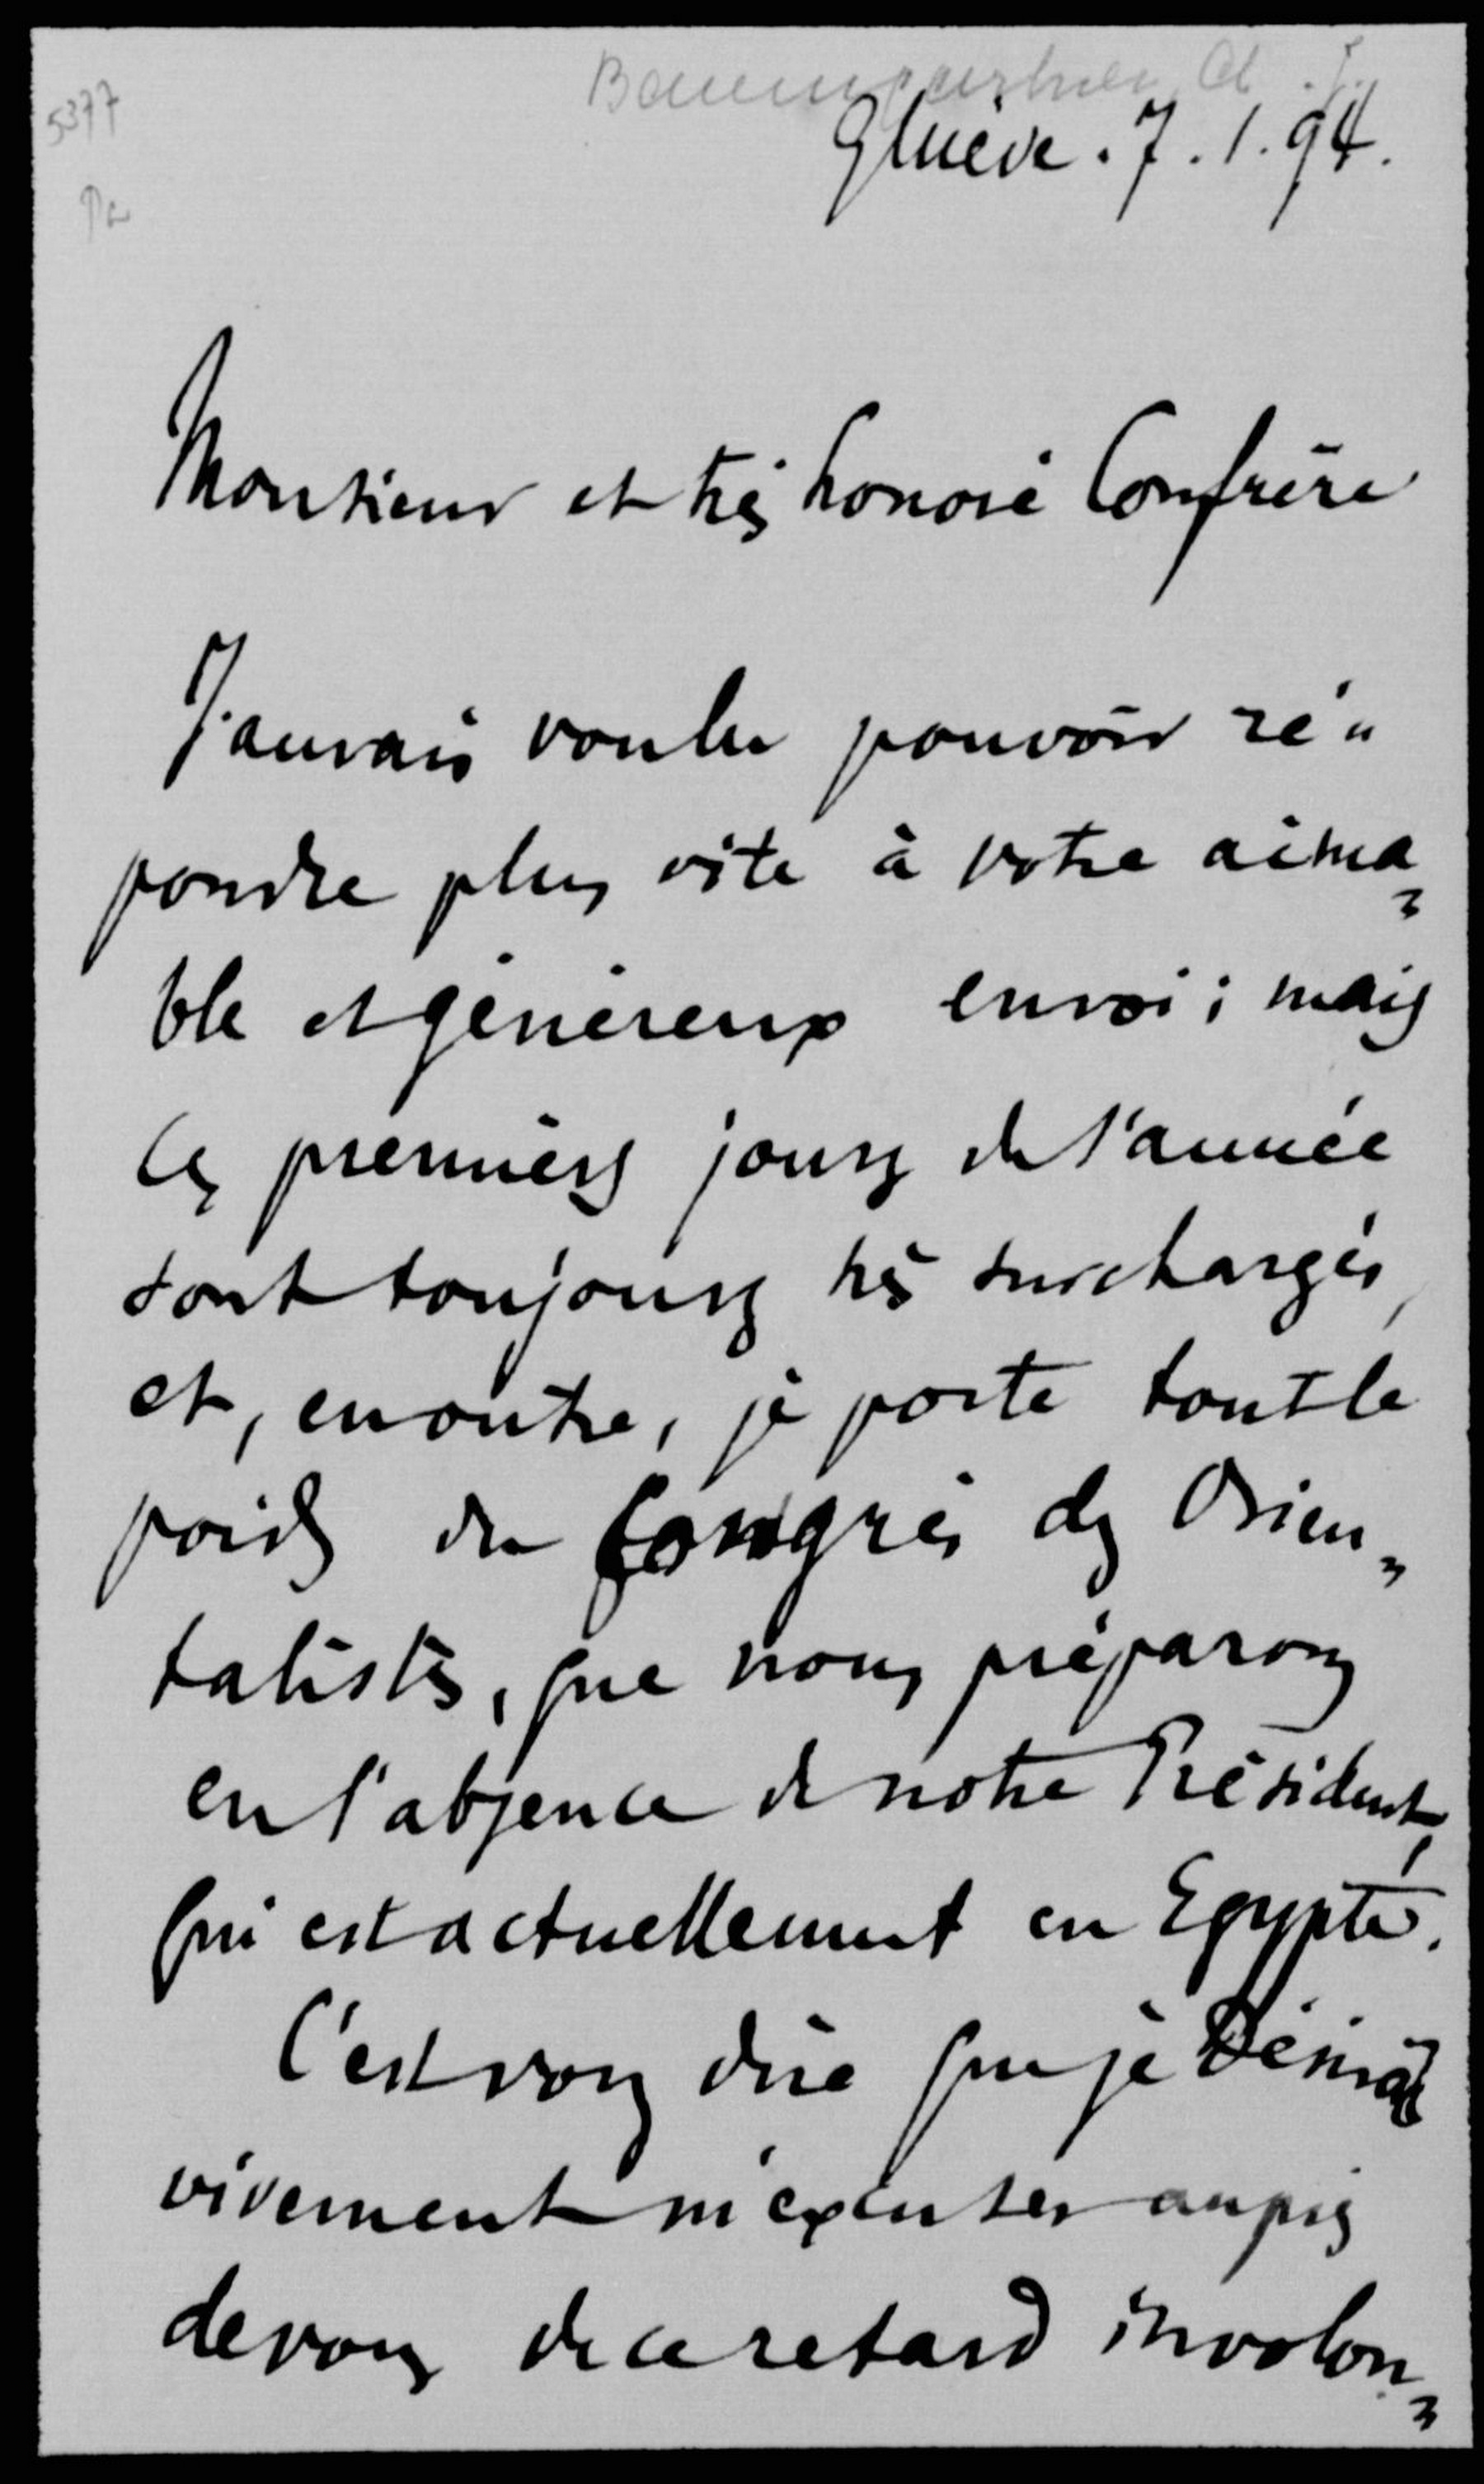 5377
Genève. 7. 1. 94.
Monsieur et très honoré Confrère
J'aurais voulu pouvoir ré-
pondre plus vite à votre aima-
ble et généreux envoi; mais
ces premiers jours de l'année
sont toujours très surchargés,
et, en outre, je porte tout le
poids du Congrès des Orien-
talistes, que nous préparons
en l'absence de notre Président,
qui est actuellement en Egypte.
C'est vous dire que je désire
vivement m'excuser auprès
de vous de ce retard involon-